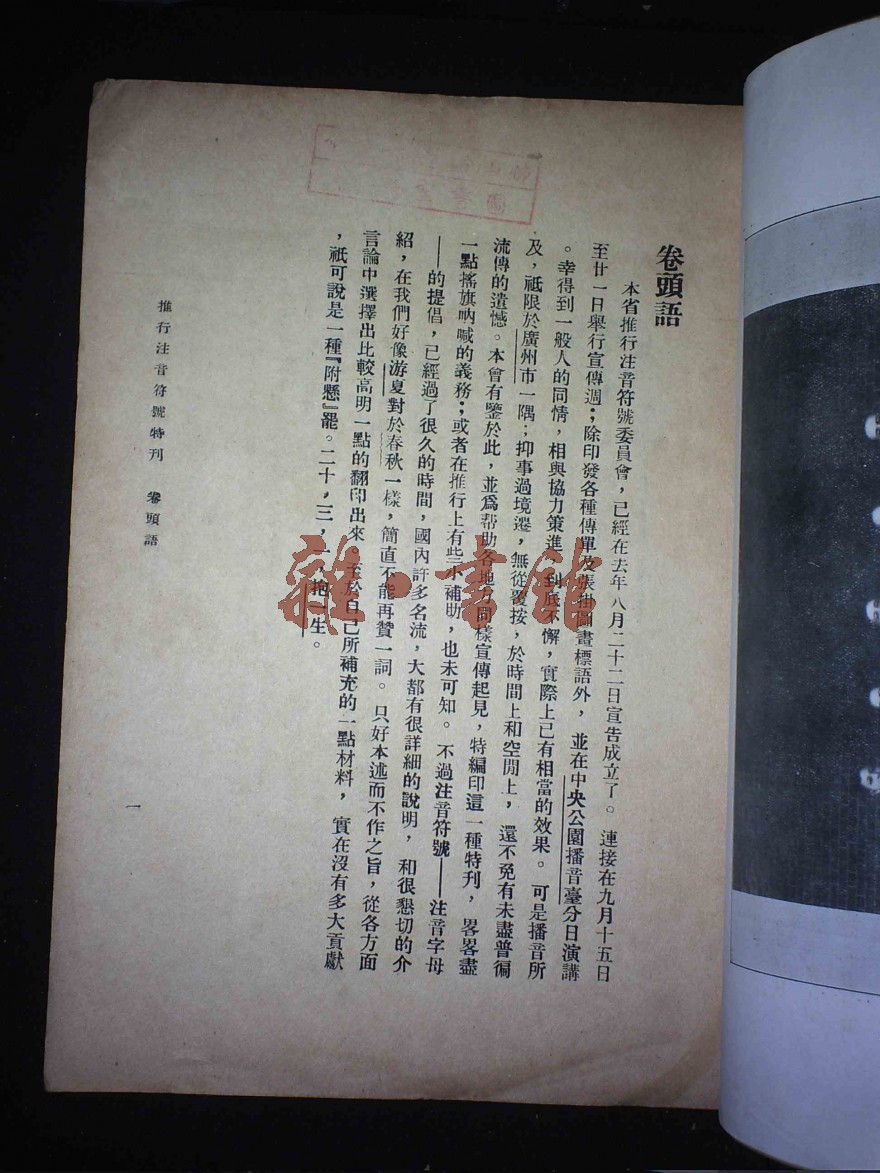 卷頭語
本省推行注音符號委員會，已經在去年八月二十二日宣告成立了。連接在九月十五日
至廿一日舉行宣傳週；除印發各種傳單及張掛圖畫標語外，並在中央公園播音臺分日演講
。幸得到一般人的同情，相與協力策進，到底不懈，實際上已有相當的效果。可是播音所
及，祗限於廣州市一隅；抑事過境遷，無從覆按，於時間上和空間上，還不免有未盡普徧
流傳的遺憾。本會有鑒於此，並爲帮助各地方同樣宣傳起見，特編印這一種特刊，畧畧盡
一點搖旗吶喊的義務；或者在推行上有些小補助，也未可知。不過注音符號——注音字母
——的提倡，已經過了很久的時間，國內許多名流，大都有很詳細的說明，和很懇切的介
紹，在我們好像游夏對於春秋一樣，簡直不能再贊一詞。只好本述而不作之旨，從各方面
言論中選擇出比較高明一點的翻印出來。至於自己所補充的一點材料，實在沒有多大貢獻
，祗可說是一種『附懸』罷。二十，三，一，抱一生。
推行注音符號特刊 卷頭語
一
雜·書館